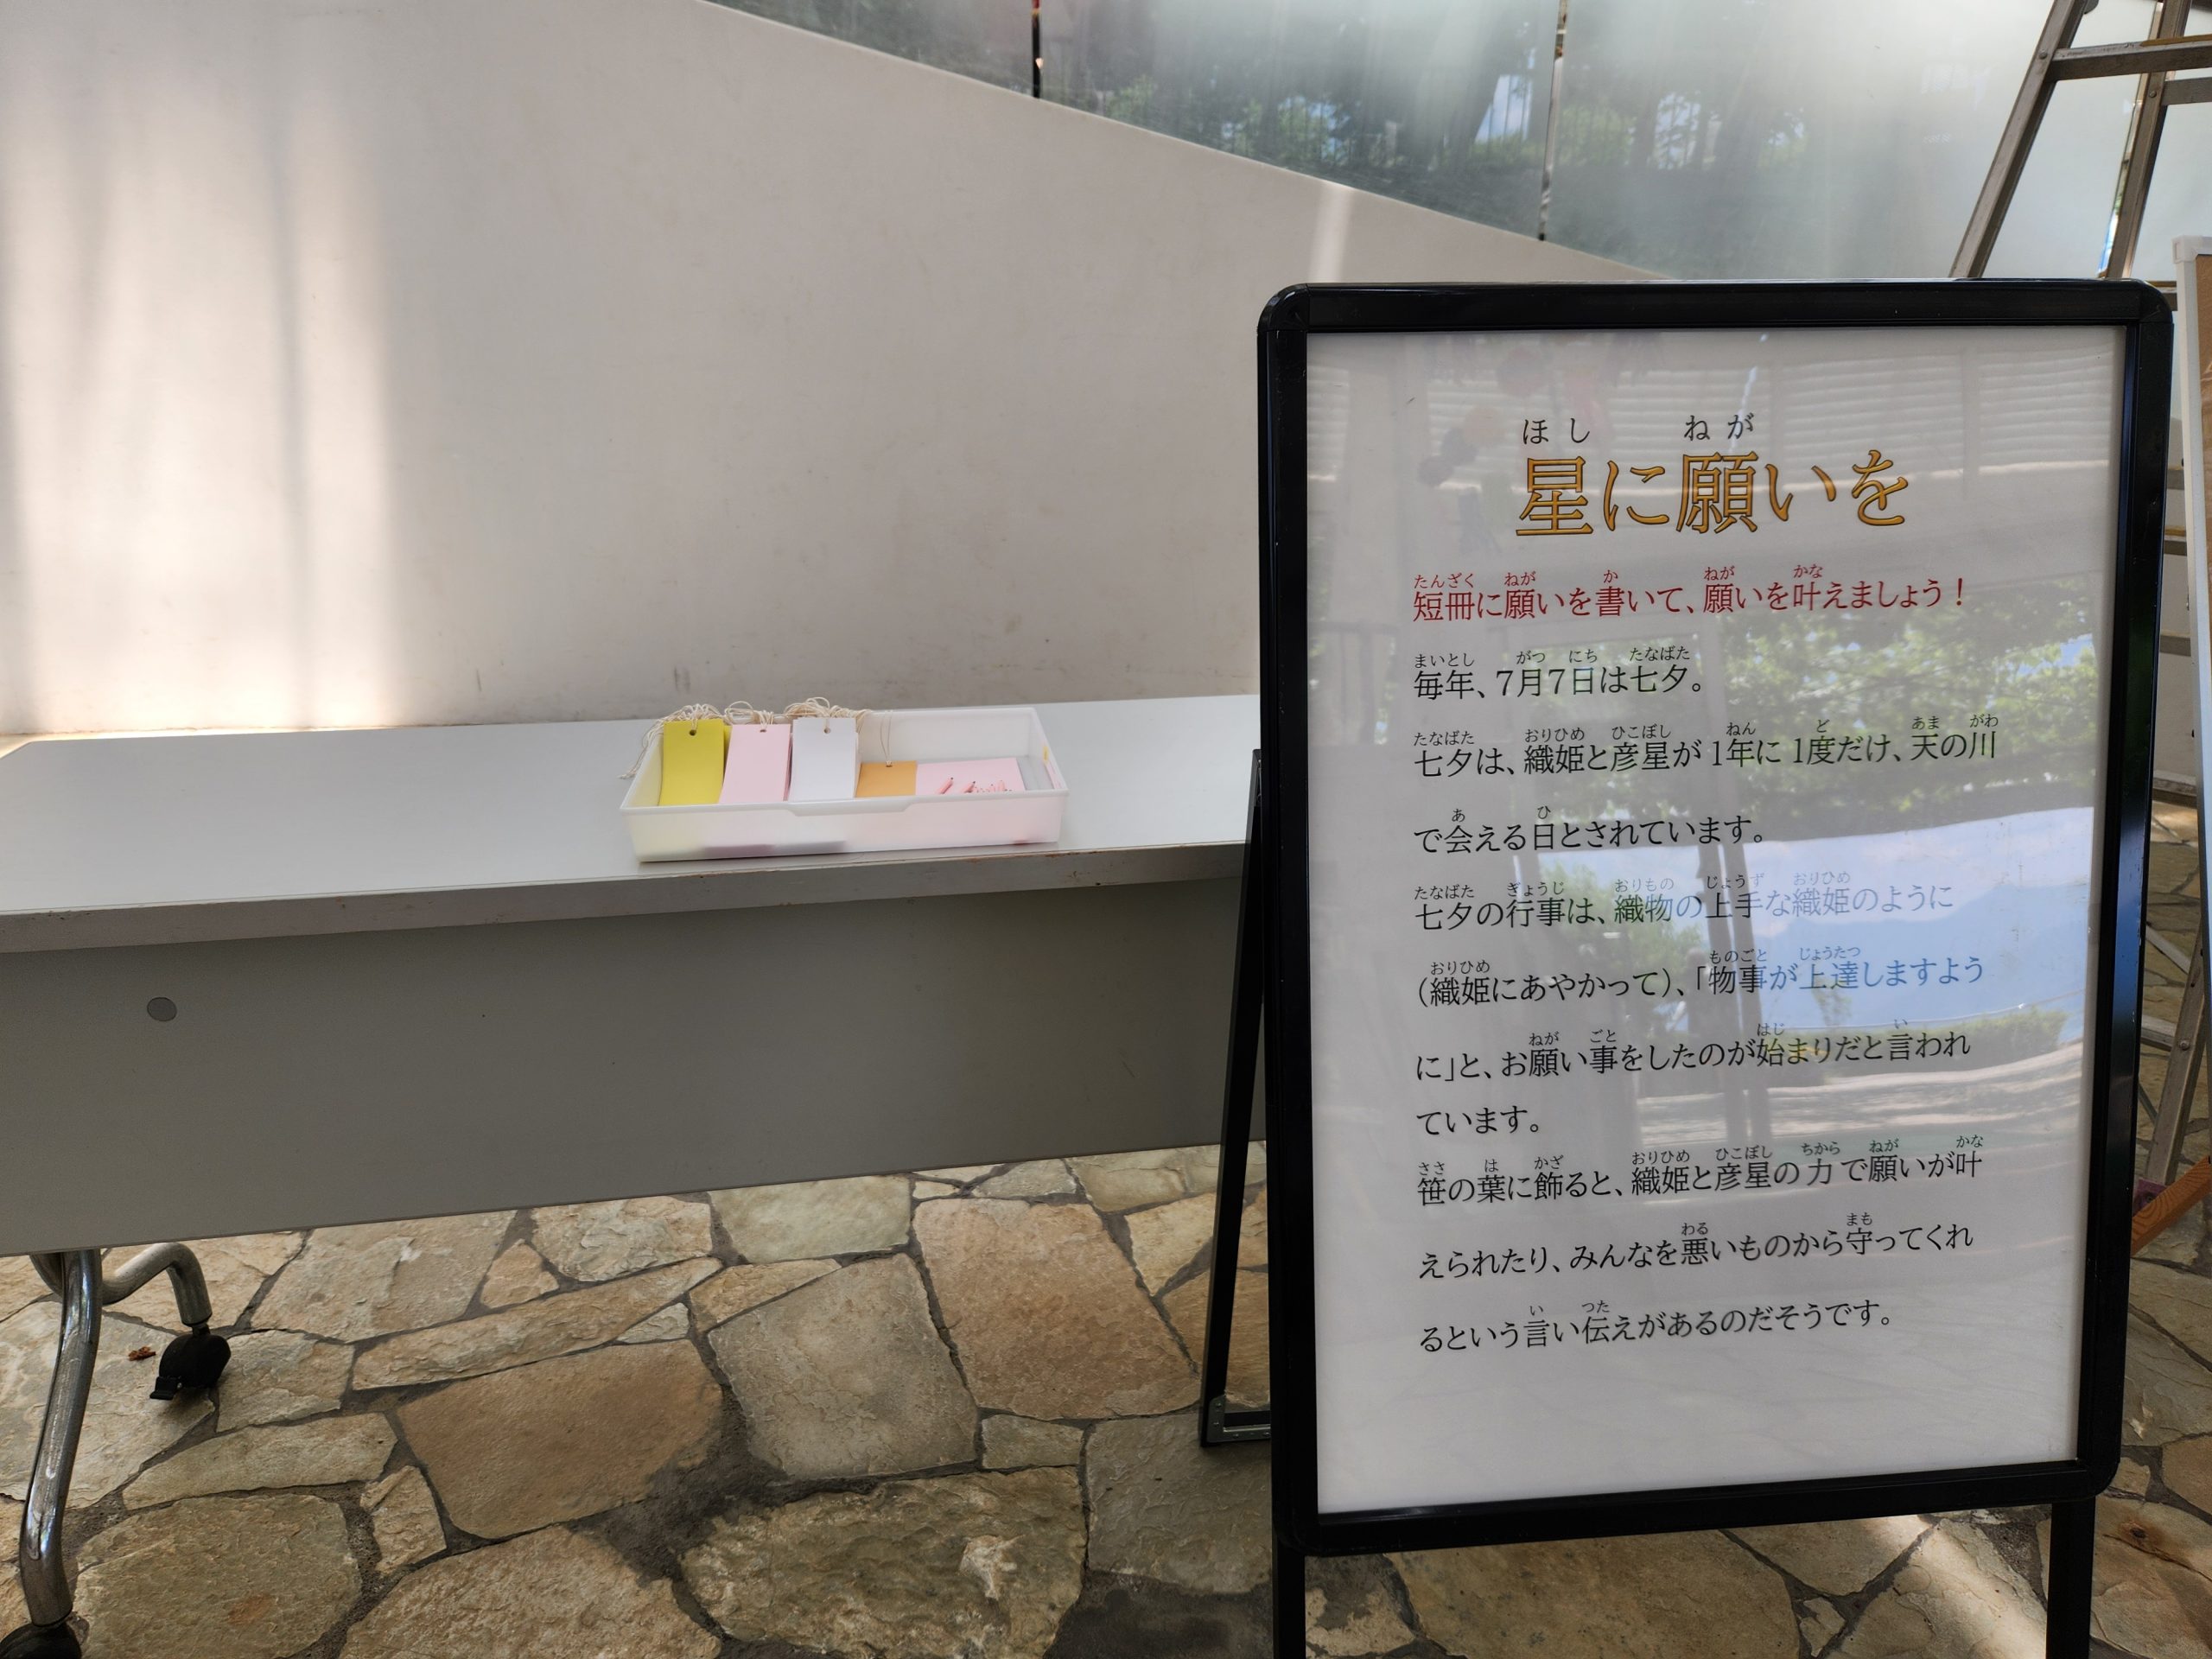 ほし ねが
星に願いを
たんざく ねが か ねが かな
短冊に願いを書いて、願いを叶えましょう！
まいとし がつ にち たなばた
毎年、7月7日は七夕。
たなばた おりひめ ひこぼし ねん ど あま がわ
七夕は、織姫と彦星が1年に1度だけ、天の川
あ ひ
で会える日とされています。
たなばた ぎょうじ おりもの じょうず おりひめ
七夕の行事は、織物の上手な織姫のように
おりひめ ものごと じょうたつ
（織姫にあやかって）、「物事が上達しますよう
ねが ごと はじ い
に」と、お願い事をしたのが始まりだと言われ
ています。
ささ は かざ おりひめ ひこぼし ちから ねが かな
笹の葉に飾ると、織姫と彦星の力で願いが叶
わる まも
えられたり、みんなを悪いものから守ってくれ
い つた
るという言い伝えがあるのだそうです。